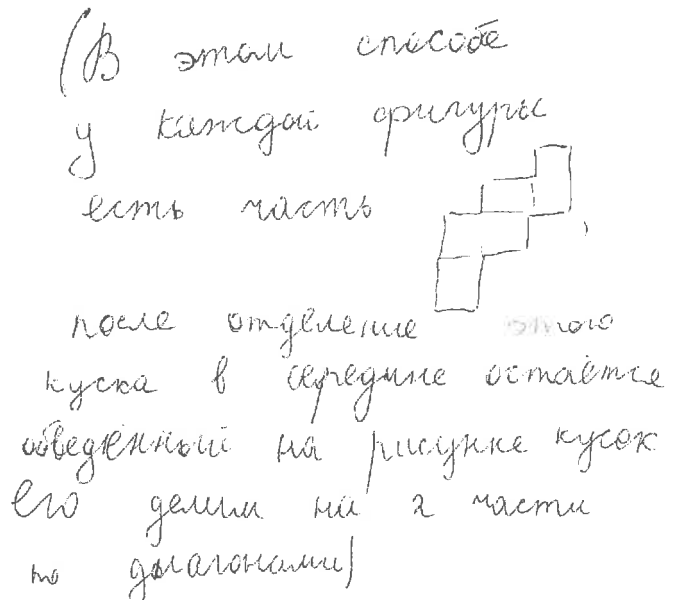 (В этом способе
у каждой фигуры
есть часть ,
после отделение этого
куска в середине остаётся
обведённый на рисунке кусок
его делим на 2 части
по диагонами)